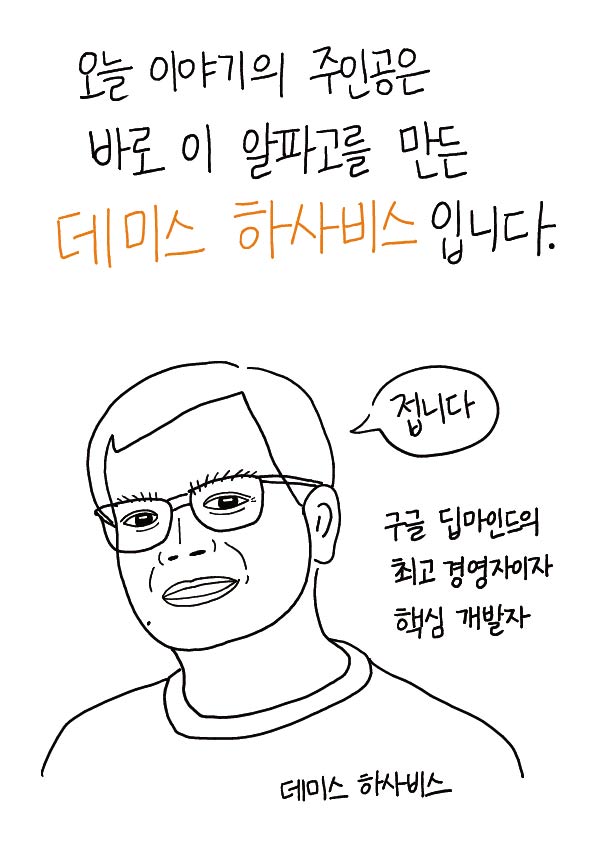 오늘 이야기의 주인공은
바로 이 알파고를 만든
데미스 하사비스입니다.
접니다
구글 딥마인드의
최고 경영자이자
핵심 개발자
데미스 하사비스